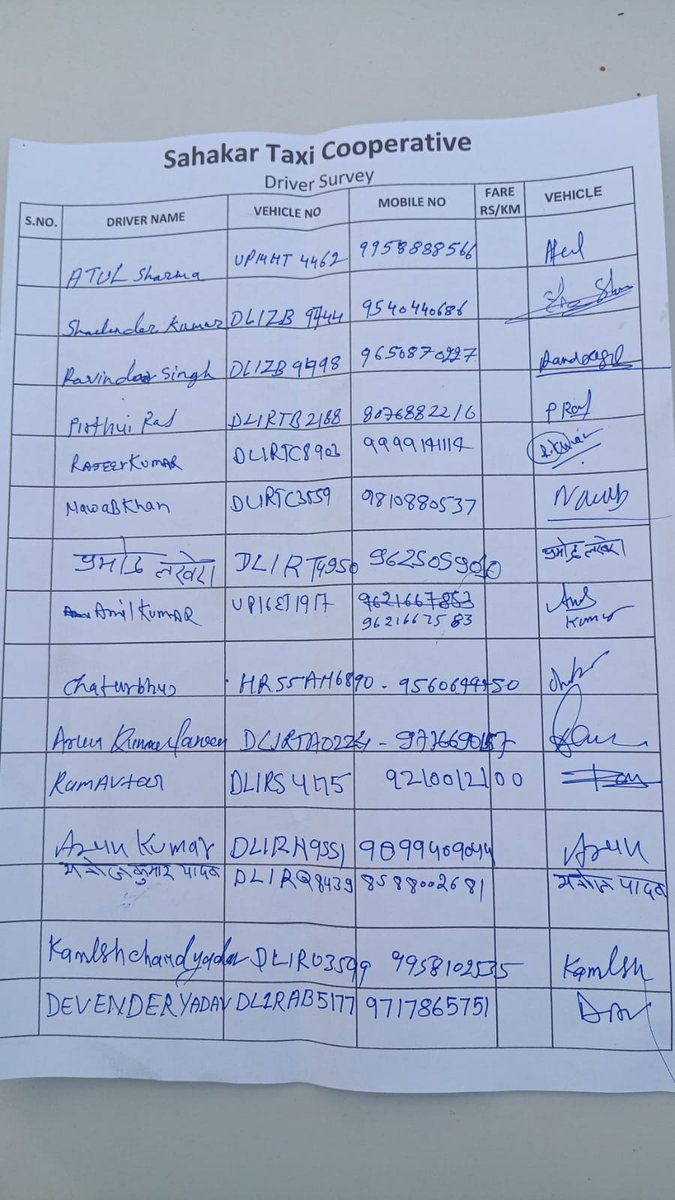 Sahakar Taxi Cooperative
Driver Survey
S.NO. DRIVER NAME VEHICLE NO MOBILE NO FARE RS/KM VEHICLE
ATUL Sharma UP14HT 4462 9958888566
Shailender Kumar DL1ZB 9744 9540440686
Ravinder Singh DL1ZB 9798 9650870227
Pirthvi Raj DL1RTB2188 8076882216 P Raj
RAJEEV KUMAR DL1RTC8903 9999141114
NawaB Khan DL1RTC3559 9810880537 Nawab
प्रमोद लखेरा DL1RT4950 प्रमोद लखेरा
Anil KUMAR UP16ET1917 9621667853 Anil Kumar
9621667583
Chaturbhuj HR55AM6890 - 9560694750
Arun Kumar DL1RTA0224 -
RamAvtar DL1RS 4175 9210012100
Arun Kumar DL1RN9551 9099409044 Arun
मनोज कुमार यादव DL1RQ8439 8588002681 मनोज यादव
Kamlsh chand yadav DL1RU3599 9958102535 Kamlsh
DEVENDER YADAV DL1RAB5177 9717865751